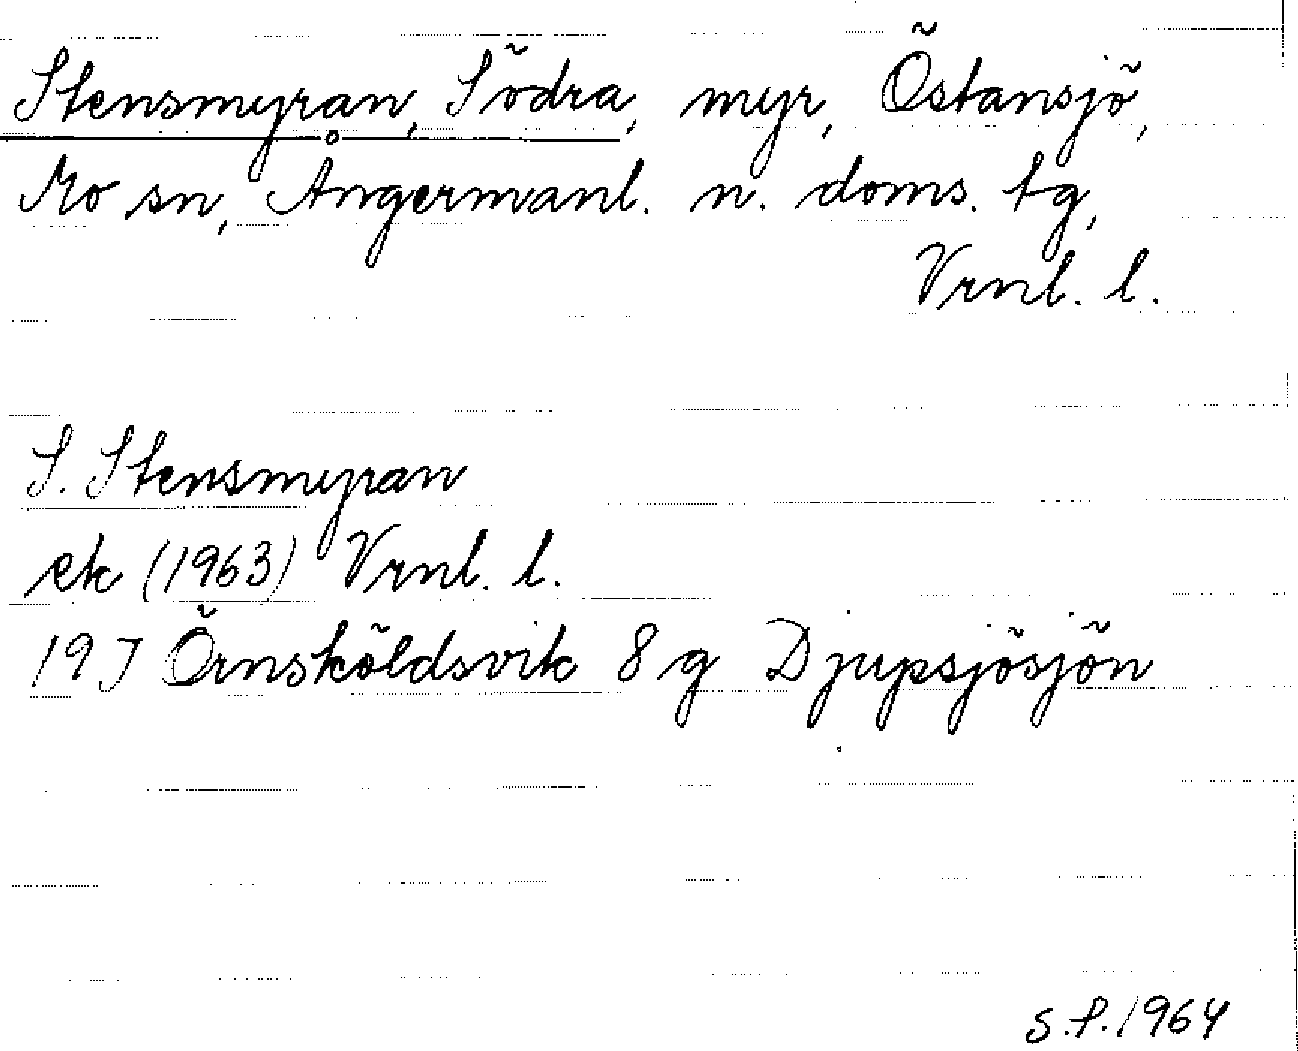 Stensmyran, Södra, myr, Östansjö,
Mo sn, Ångermanl. n. doms. tg,
Vrnl. l.
S. Stensmyran
ek (1963) Vrnl. l.
19J Örnsköldsvik 8g Djupsjösjön
S.P. 1964